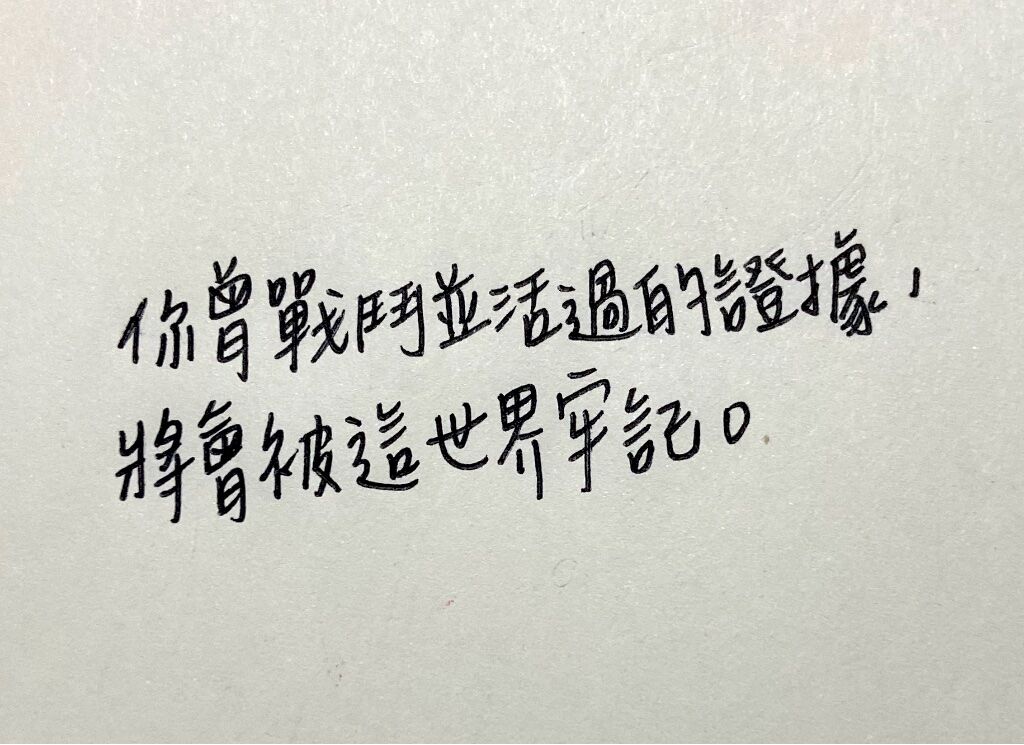 你曾戰鬥並活過的證據，
將會被這世界牢記。